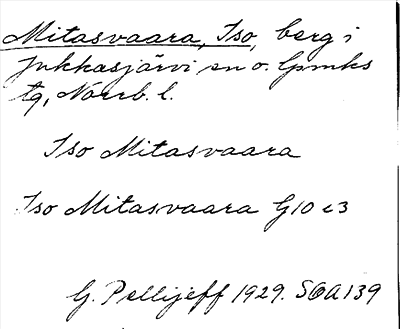 Mitasvaara, Iso, berg i
Jukkasjärvi sn o. Gpmks
tg, Norrb. l.
Iso Mitasvaara
Iso Mitasvaara G10 c3
G. Pellijeff 1929. SOA 139